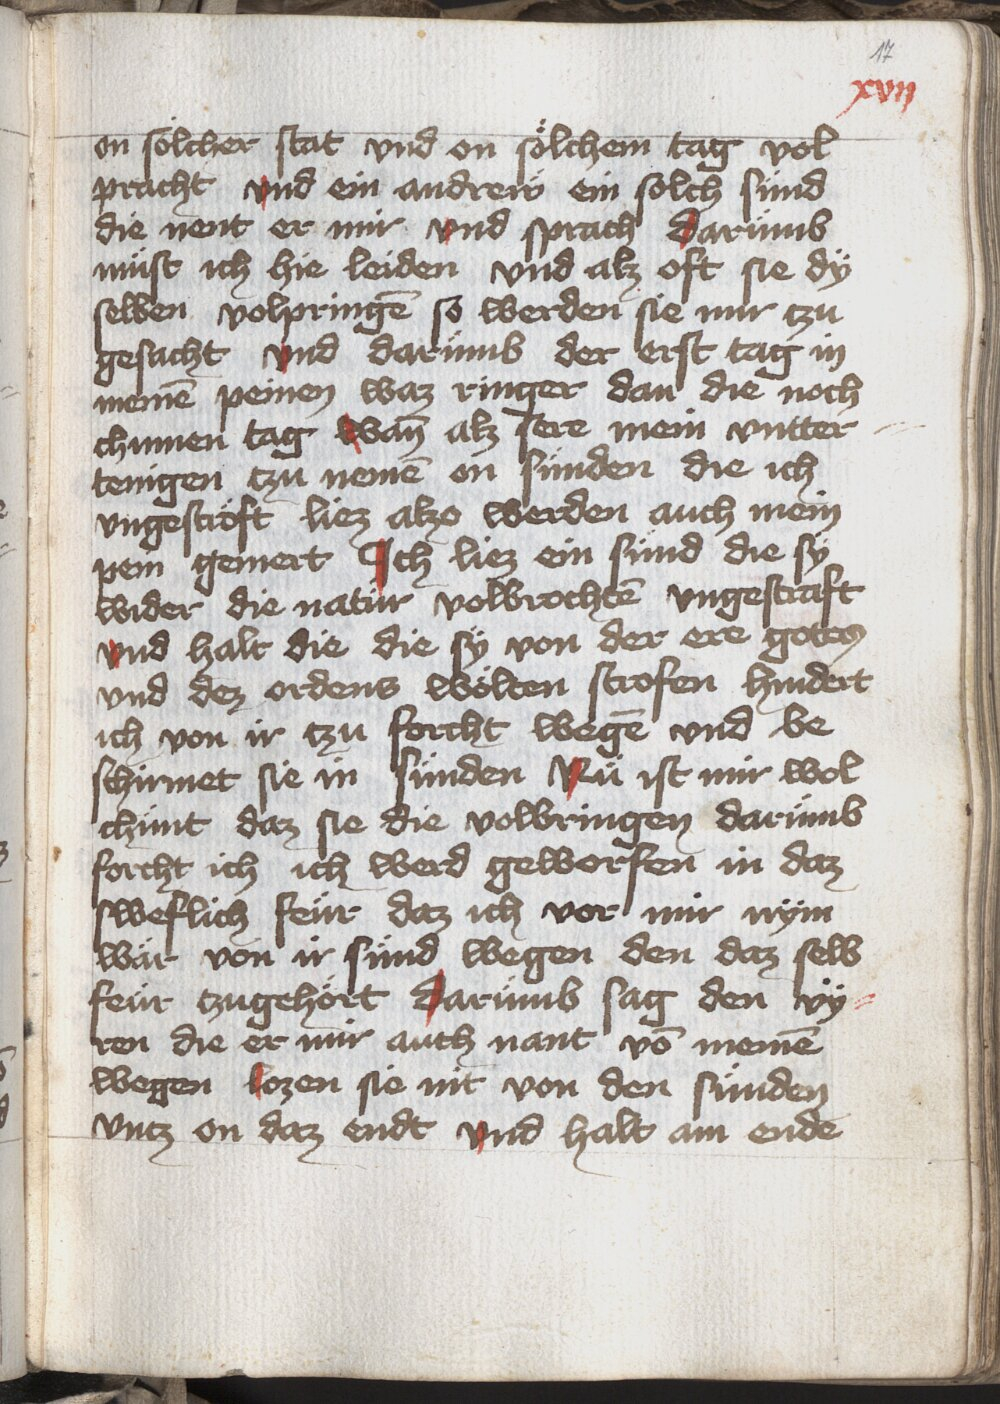 17
xvij
on sölcher stat vnd on sölchem tag vol
pracht vnd ein andrew ein solch sünd
die nent er mir vnd sprach darümb
müst ich hie leiden vnd alz oft sie dÿ
selben volpringē so werden sie mir tzu
gesacht vnd darümb der erst tag in
meinē peinen waz ringer dan die noch
chumen tag wan̄ alz sere mein vntter
tenigen tzu nemē on sünden die ich
vngestroft liez alzo werden auch mein
pein gemert Ich liez ein sünd die sÿ
wider die natür volbrochtē vngestraft
vnd halt die die sÿ von der ere gotes
vnd dez ordens wölten strofen hindert
ich von ir tzu forcht wegē vnd be
schirmet sie in sünden Nü ist mir wol
chünt daz sie die volbringen darümb
forcht ich ich werd geworfen in daz
sweflich feür daz ich vor mir nÿm
wär von ir sünd wegen den daz selb
feür tzugehört darümb sag den vÿ
ren die er mir auch nant vō meinē
wegen lozen sie nit von den sünden
vntz on daz endt vnd halt am ende